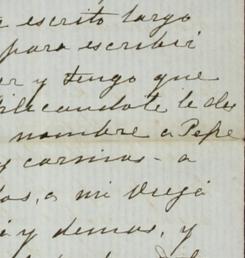 escrito largo
para escribir
er y tengo que
plicandote le des
nombre a Pepe
y cariños a
dos, a mi vieja
i y demas, y